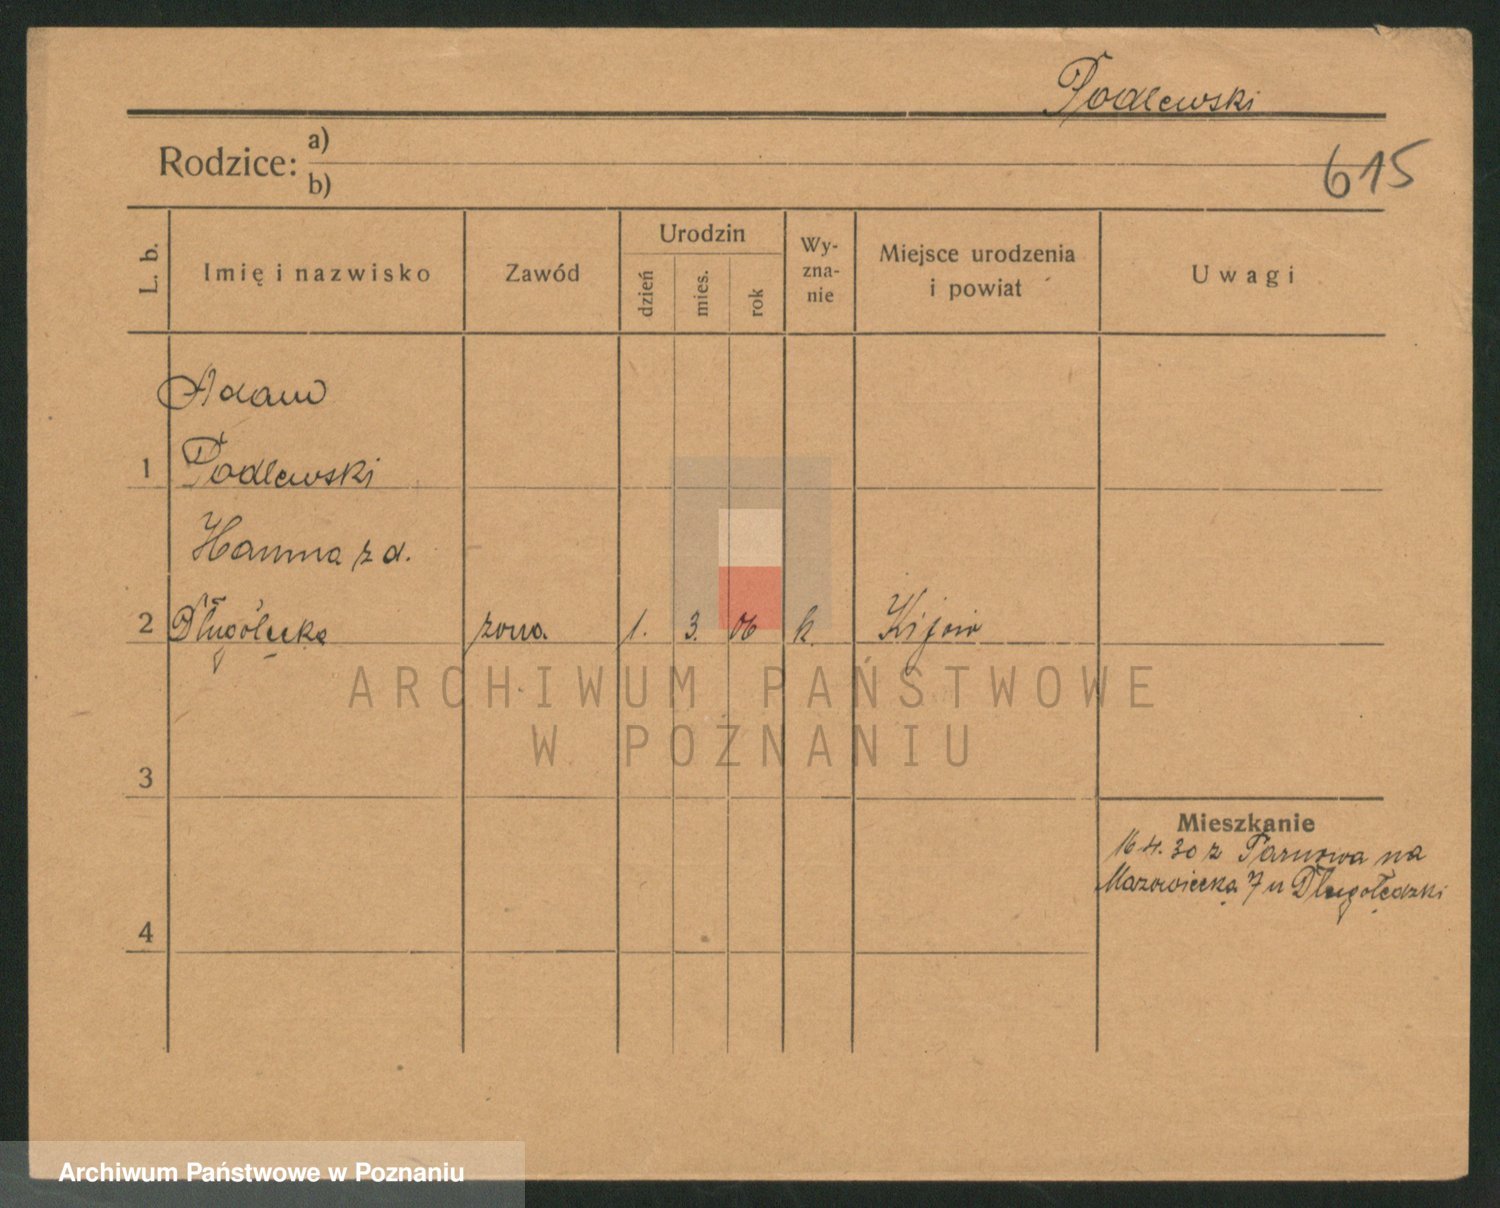 Podlewski
Rodzice: a)
b)
615
L. b. Imię i nazwisko Zawód Urodzin dzień mies. rok Wy-zna-nie Miejsce urodzenia i powiat Uwagi
Adam
1 Podlewski
Hanna z d.
2 żona 1. 3. 06 k. Kijów
ARCHIWUM PAŃSTWOWE
W POZNANIU
3
Mieszkanie
16.4.30 z Tarnowa na
Mazowiecką 7 u
4
Archiwum Państwowe w Poznaniu